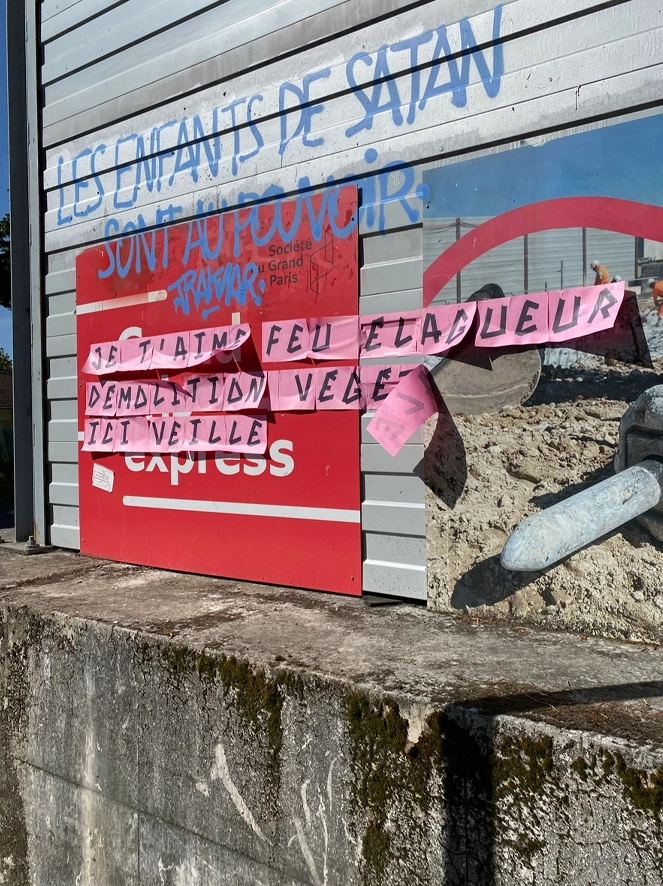 LES ENFANTS DE SATAN
SONT AU POUVOIR.
Société
Grand
Paris
JE T'AIME FEU ELAGUEUR
DEMOLITION VÉGÉ
ICI VEILLE
express